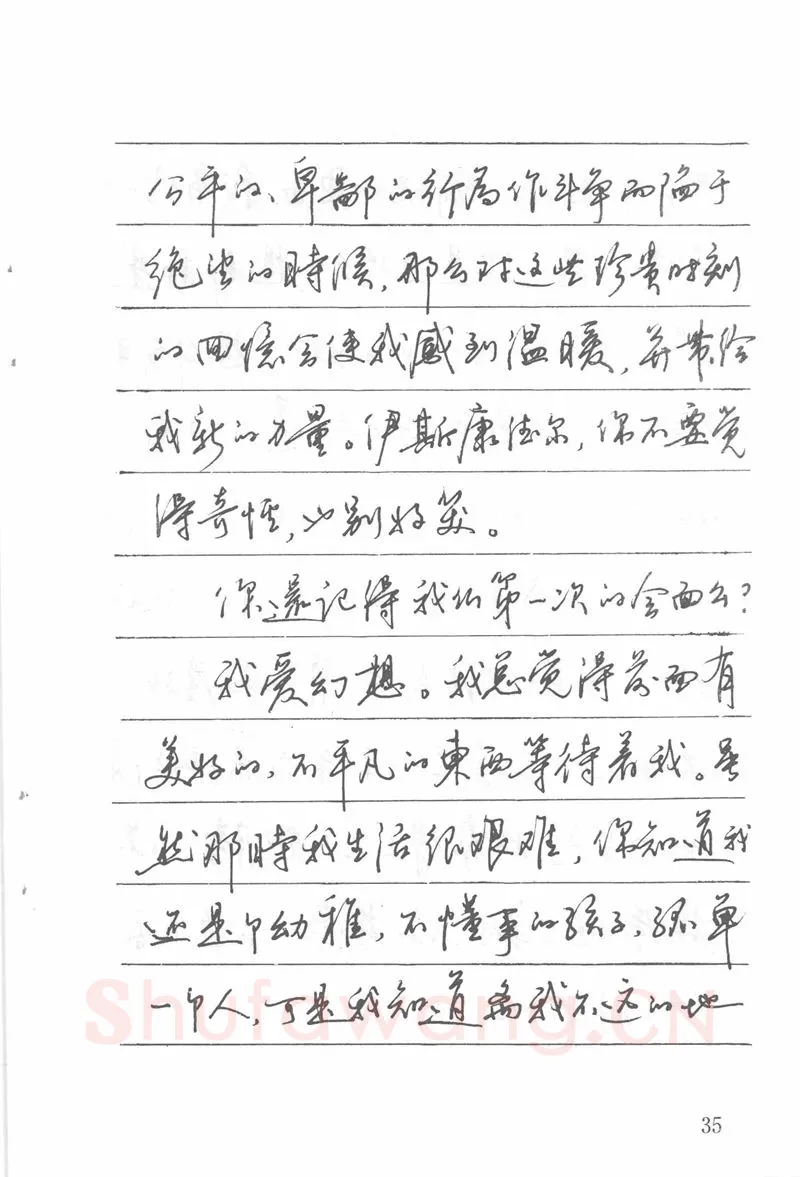 公平的、卑鄙的行為作斗争而陷于
絶望的時候，那么对这些珍贵时刻
的回憶会使我感到温暖，并带给
我新的力量。伊斯康德尔，你不要觉
得奇怪，也别好笑。
你還记得我们第一次的会面么？
我爱幻想。我总觉得前面有
美好的，不平凡的東西等待着我。虽
然那時我生活很艰难，你知道我
还是个幼稚，不懂事的孩子，孤单
一个人，可是我知道离我不远的地
Shufawang.CN
35